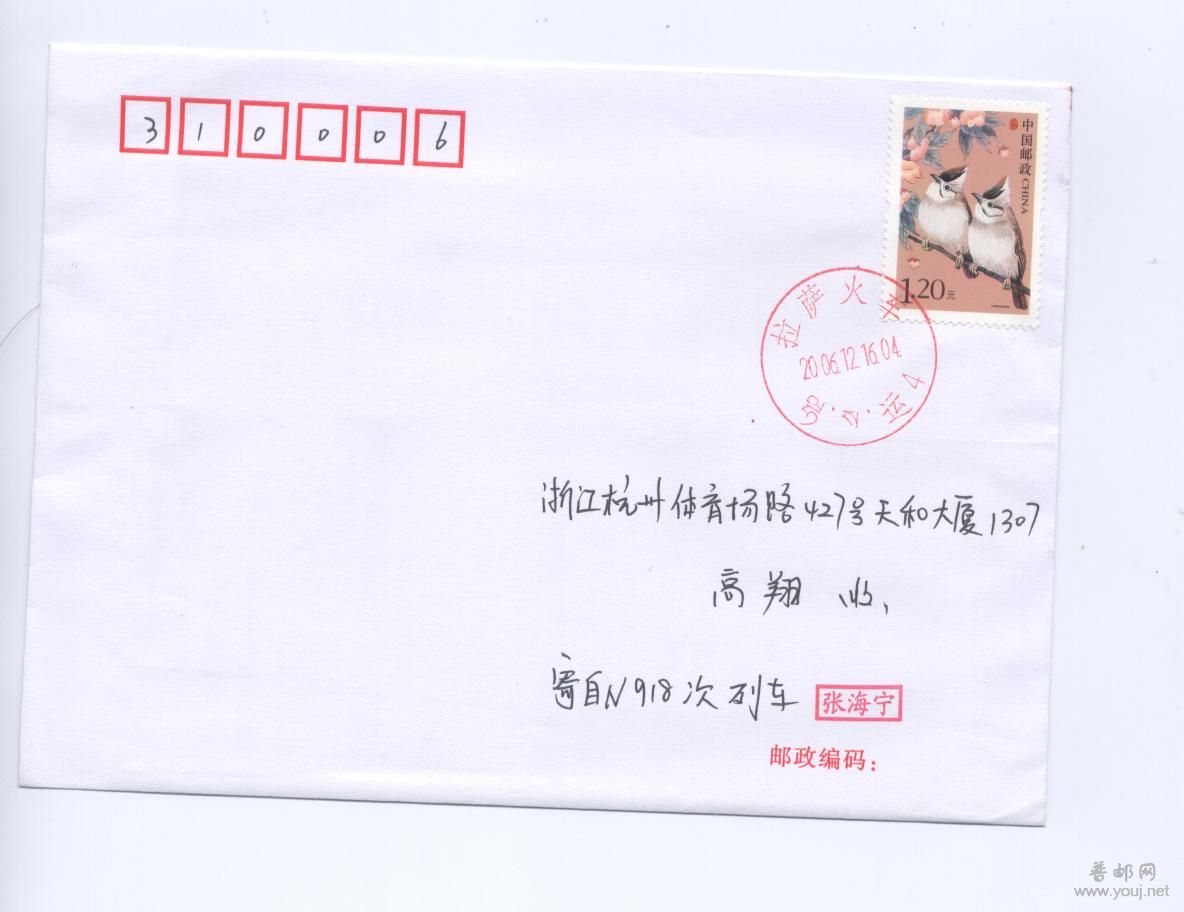 310006
中国邮政 CHINA
1.20元
拉萨火车
2006.12.16.04
运4
浙江杭州体育场路427号天和大厦1307
高翔 收
寄自N918次列车 张海宁
邮政编码:
普邮网
www.youj.net